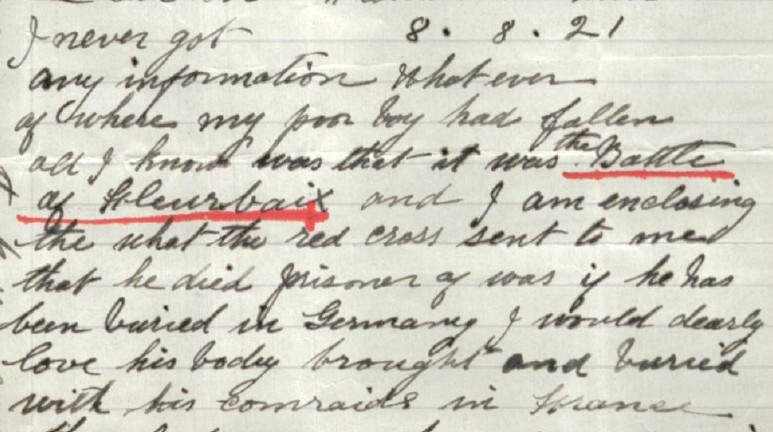 I never got 8. 8. 21
any information whatever
of where my poor boy had fallen
all I know was that it was the Battle
of Fleurbaix and I am enclosing
the what the red cross sent to me
that he died prisoner of was if he has
been buried in Germany I would dearly
love his body brought and buried
with his comraids in France